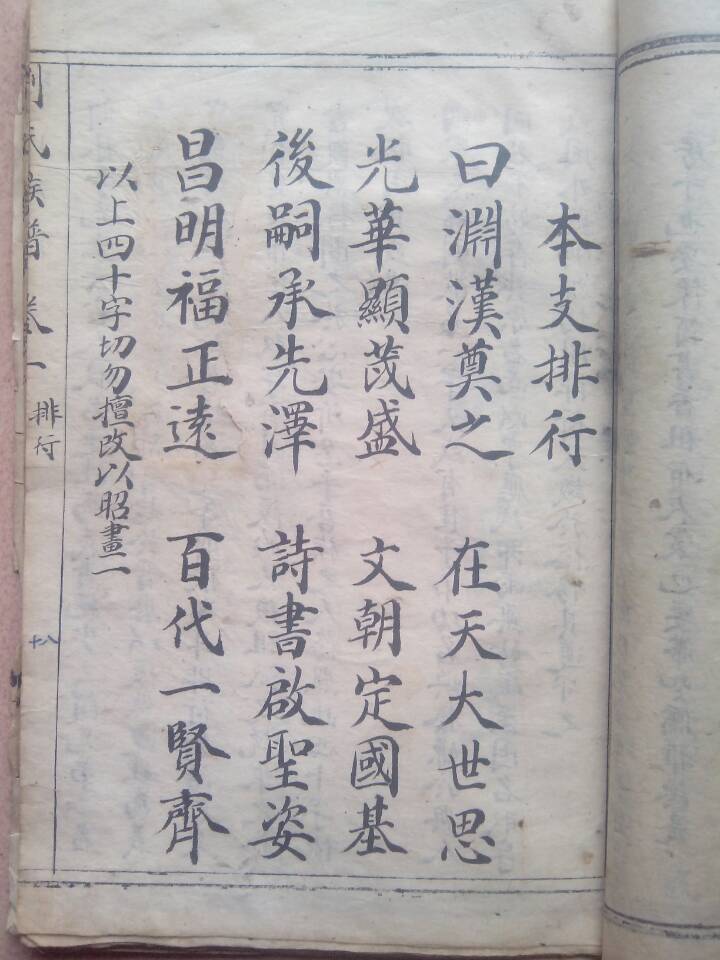 本支排行
曰淵漢奠之 在天大世思
光華顯茂盛 文朝定國基
後嗣承先澤 詩書啟聖姿
昌明福正遠 百代一賢齊
以上四十字切勿擅改以昭畫一
劉氏族譜 卷一 排行
十八